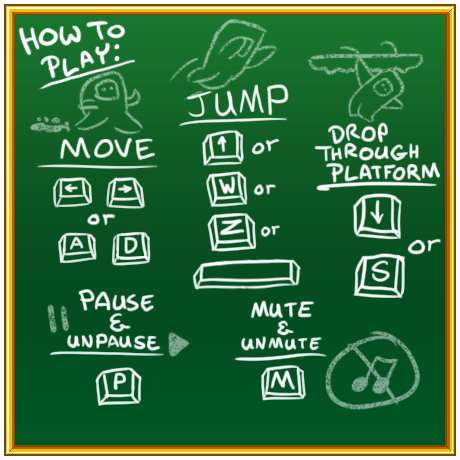 HOW TO
PLAY:
MOVE
← →
or
A D
JUMP
↑ or
W or
Z or
DROP
THROUGH
PLATFORM
↓
or
S
PAUSE
&
UNPAUSE
P
MUTE
&
UNMUTE
M